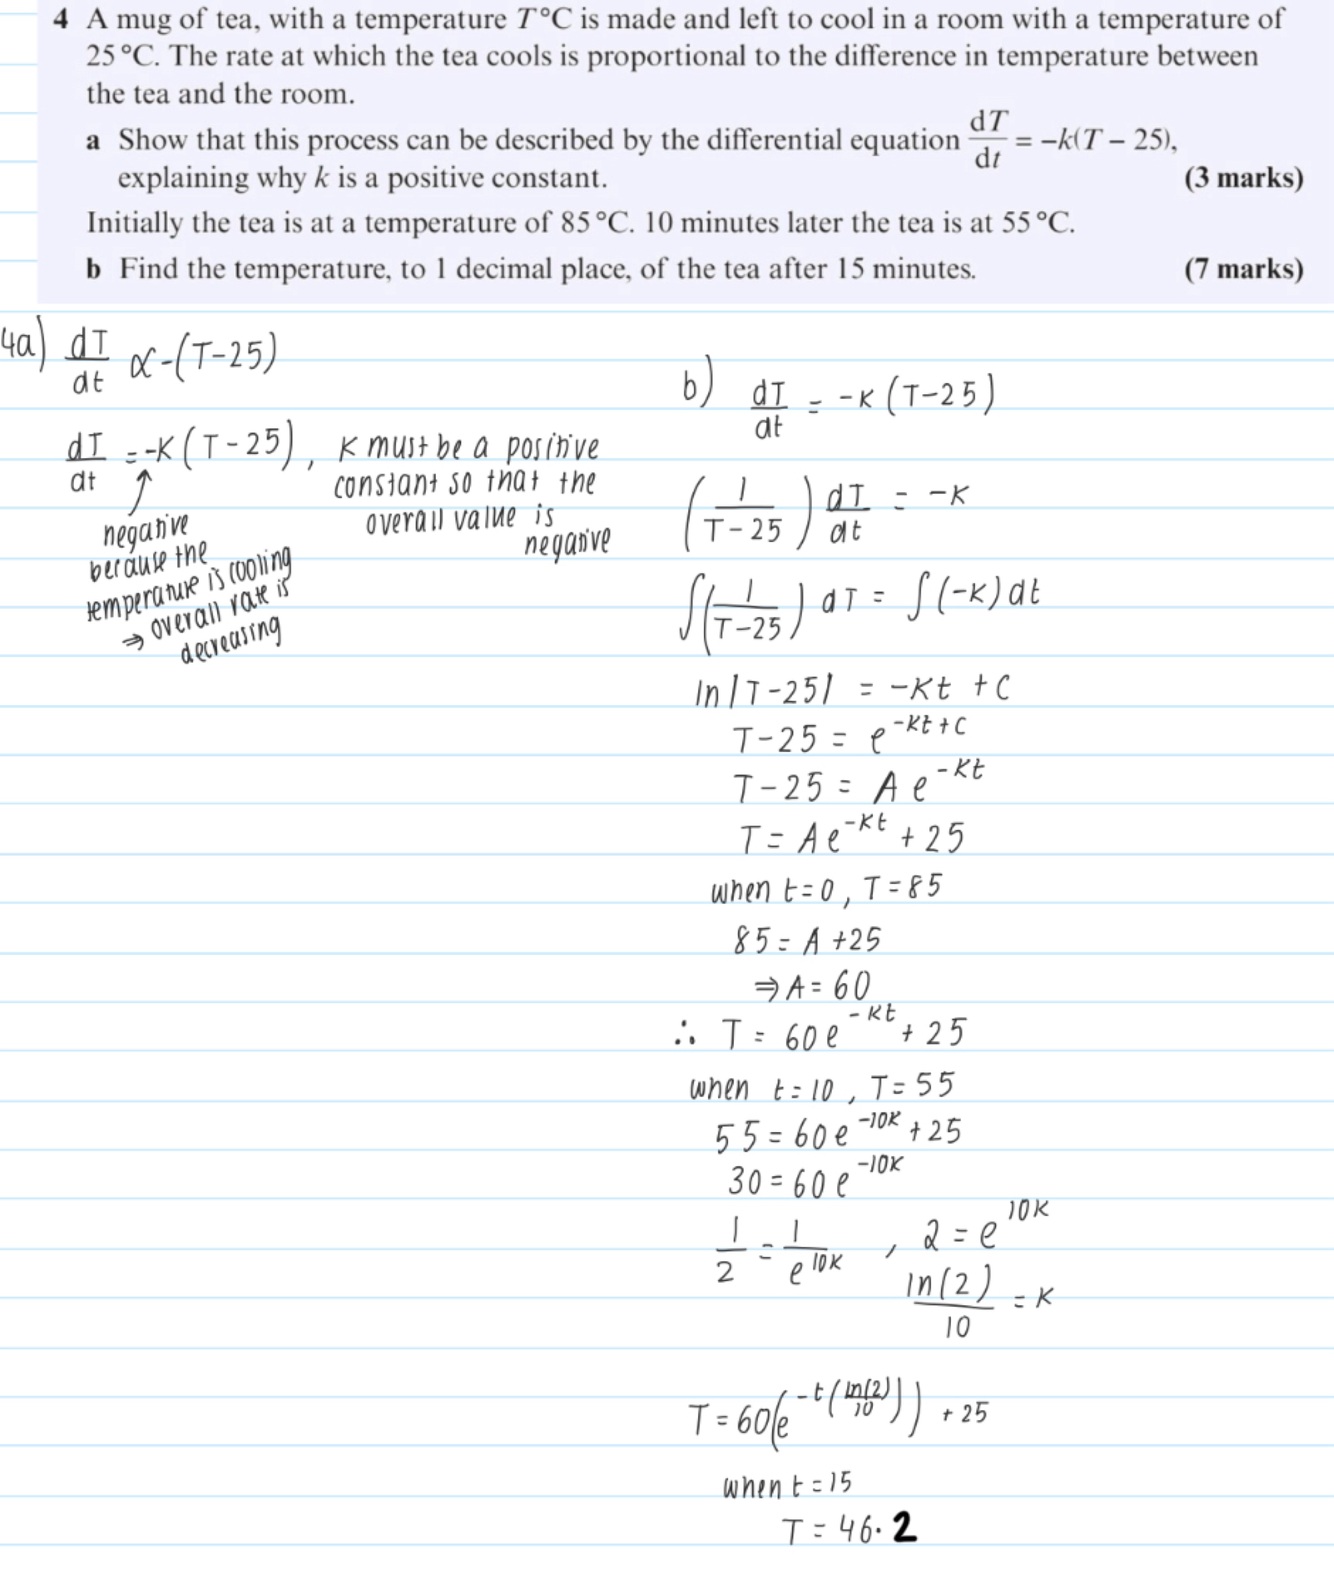 4 A mug of tea, with a temperature T°C is made and left to cool in a room with a temperature of
25 °C. The rate at which the tea cools is proportional to the difference in temperature between
the tea and the room.
a Show that this process can be described by the differential equation dT/dt = −k(T − 25),
explaining why k is a positive constant.
(3 marks)
Initially the tea is at a temperature of 85 °C. 10 minutes later the tea is at 55 °C.
b Find the temperature, to 1 decimal place, of the tea after 15 minutes.
(7 marks)
4a) dT/dt ∝ -(T-25)
dT/dt = -K(T-25), K must be a positive
constant so that the
overall value is
negative
↑
negative
because the
temperature is cooling
⇒ overall rate is
decreasing
b) dT/dt = -K(T-25)
(1/(T-25)) dT/dt = -K
∫(1/(T-25)) dT = ∫(-K)dt
ln|T-25| = -Kt +C
T-25 = e^(-Kt+C)
T-25 = Ae^(-Kt)
T= Ae^(-Kt) + 25
when t=0, T=85
85 = A +25
⇒ A = 60
∴ T = 60e^(-Kt) + 25
when t=10, T=55
55 = 60e^(-10K) +25
30 = 60e^(-10K)
1/2 = 1/e^(10K) , 2 = e^(10K)
ln(2)/10 = K
T = 60(e^(-t(ln(2)/10))) + 25
when t = 15
T = 46.2